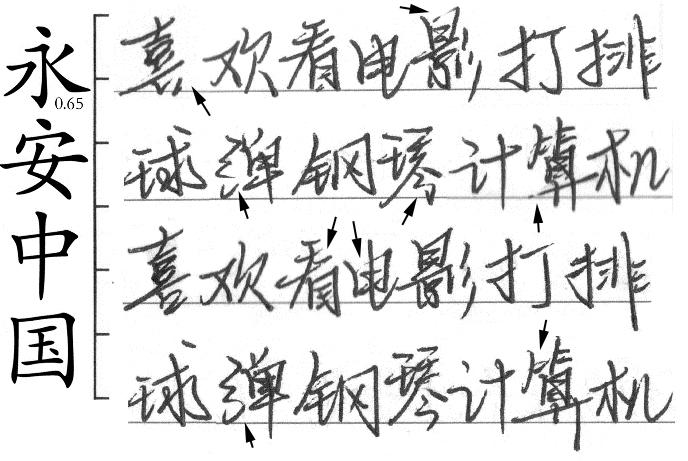 永安中国
0.65
喜欢看电影打排
球弹钢琴计算机
喜欢看电影打排
球弹钢琴计算机